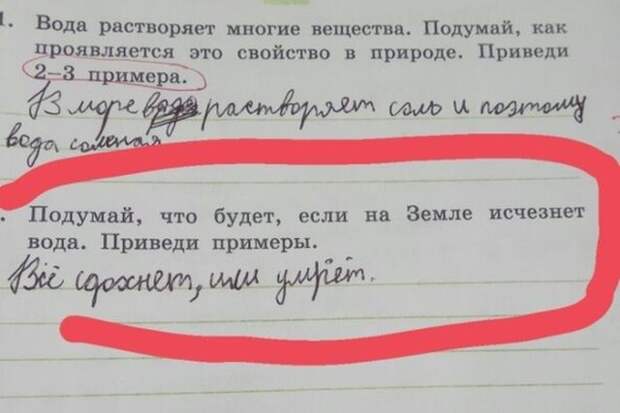 1. Вода растворяет многие вещества. Подумай, как
проявляется это свойство в природе. Приведи
2–3 примера.
В море растворяет соль и поэтому
вода соленая
. Подумай, что будет, если на Земле исчезнет
вода. Приведи примеры.
Всё сдохнет, или умрёт.